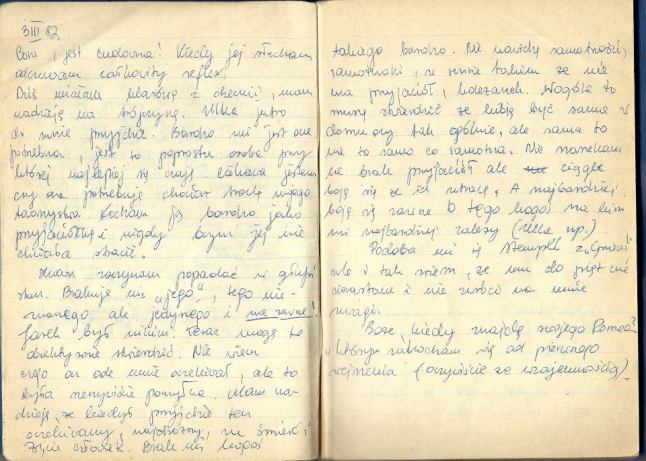 3 III 82
jest cudowna! Kiedy jej słucham
odczuwam całkowity reflex.
Dziś miałam klasówkę z chemii, mam
nadzieję na trójczynę. Ulka jutro
do mnie przyjdzie. Bardzo mi jest ona
potrzebna, jest to poprostu osoba przy
której najlepiej się czuję. Ciekawa jestem
czy ona potrzebuje chociaż trochę mojego
towarzystwa. Kocham ją bardzo jako
przyjaciółkę i nigdy bym jej nie
chciała stracić.
Znów zaczynam popadać w głupi
stan. Brakuje mi „jego", tego nie-
znanego ale jedynego i na zawsze!
Jacek był niczym. Teraz mogę to
obiektywnie stwierdzić. Nie wiem
czego on ode mnie oczekiwał, ale to
była pomyłka. Mam na-
dzieję, że kiedyś przyjdzie ten
oczekiwany, najdroższy, na śmierć i
życie człowiek. Brak mi kogoś
takiego bardzo. Nie nawidzę samotności,
samotności, w sensie takim że nie
ma przyjaciół, koleżanek. Wogóle to
muszę stwierdzić że lubię być sama w
domu czy tak ogólnie, ale sama to
nie to samo co samotna. Nie narzekam
na brak przyjaciół ale ciągle
boję się że ich utracę. A najbardziej
boję się zawsze o tego kogoś na kim
mi najbardziej zależy (Ulka np.)
Podoba mi się Stempel z „
ale i tak wiem, że mu do pięt nie
dorastam i nie zwróci na mnie
uwagi.
Boże, kiedy znajdę swojego Romea,
w którym zakocham się od pierwszego
wejrzenia (oczywiście ze wzajemnością)